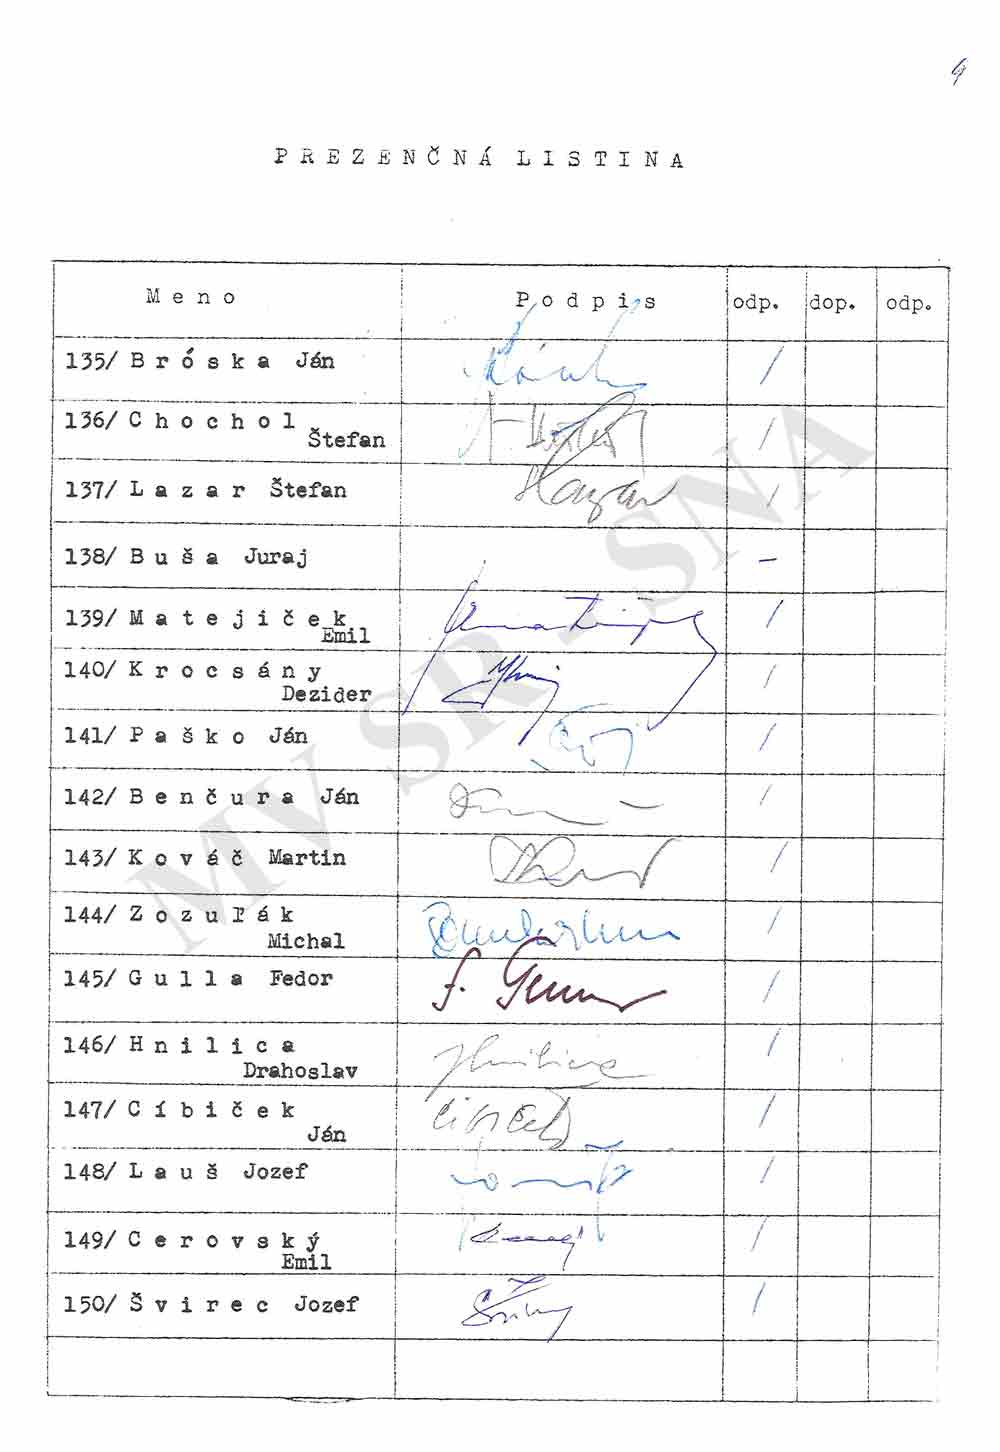 4
PREZENČNÁ LISTINA
Meno Podpis odp. dop. odp.
135/ Bróska Ján /
136/ Chochol
Štefan /
137/ Lazar Štefan /
138/ Buša Juraj –
139/ Matejiček
Emil /
140/ Krocsány
Dezider /
141/ Paško Ján /
142/ Benčura Ján /
143/ Kováč Martin /
144/ Zozuľák
Michal /
145/ Gulla Fedor /
146/ Hnilica
Drahoslav /
147/ Cíbiček
Ján /
148/ Lauš Jozef /
149/ Cerovský
Emil /
150/ Švirec Jozef /
MV SR - SNA